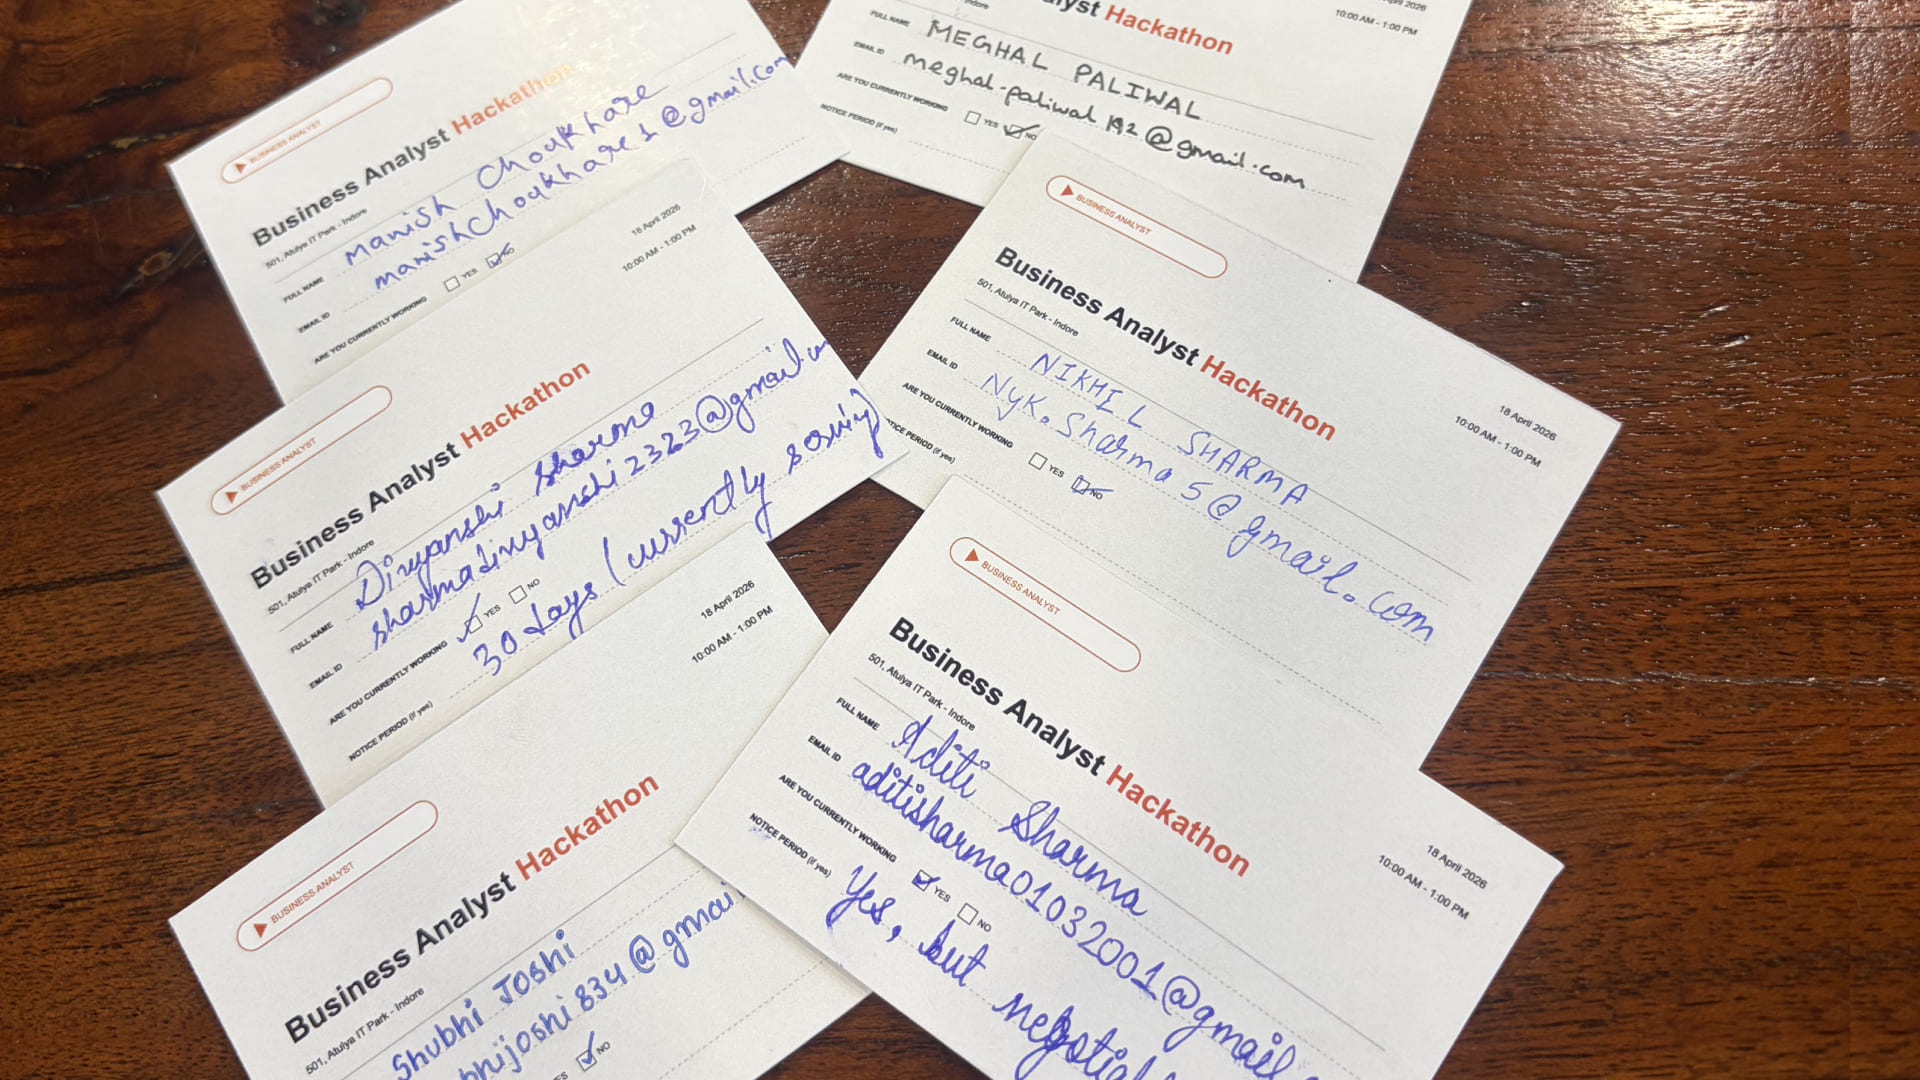 BUSINESS ANALYST
Business Analyst Hackathon
501, Atulya IT Park - Indore
FULL NAME Manish Choukhare
EMAIL ID manishchoukhare1@gmail.com
ARE YOU CURRENTLY WORKING YES NO
18 April 2026
10:00 AM - 1:00 PM
BUSINESS ANALYST
Business Analyst Hackathon
501, Atulya IT Park - Indore
FULL NAME Divyanshi Sharma
EMAIL ID sharmadivyanshi2323@gmail.
ARE YOU CURRENTLY WORKING YES NO
NOTICE PERIOD (if yes) 30 days (currently serving)
18 April 2026
10:00 AM - 1:00 PM
BUSINESS ANALYST
Business Analyst Hackathon
501, Atulya IT Park - Indore
Shubhi Joshi
bhijoshi834@gmai
ES NO
alyst Hackathon
Indore
April 2026
10:00 AM - 1:00 PM
FULL NAME MEGHAL PALIWAL
EMAIL ID meghal.paliwal192@gmail.com
ARE YOU CURRENTLY WORKING YES NO
NOTICE PERIOD (if yes)
BUSINESS ANALYST
Business Analyst Hackathon
501, Atulya IT Park - Indore
18 April 2026
10:00 AM - 1:00 PM
FULL NAME NIKHIL SHARMA
EMAIL ID Nyk.Sharma5@gmail.com
ARE YOU CURRENTLY WORKING YES NO
TICE PERIOD (if yes)
BUSINESS ANALYST
Business Analyst Hackathon
501, Atulya IT Park - Indore
18 April 2026
10:00 AM - 1:00 PM
FULL NAME Aditi Sharma
EMAIL ID aditisharma01032001@gmail
ARE YOU CURRENTLY WORKING YES NO
NOTICE PERIOD (if yes) Yes, but negotia